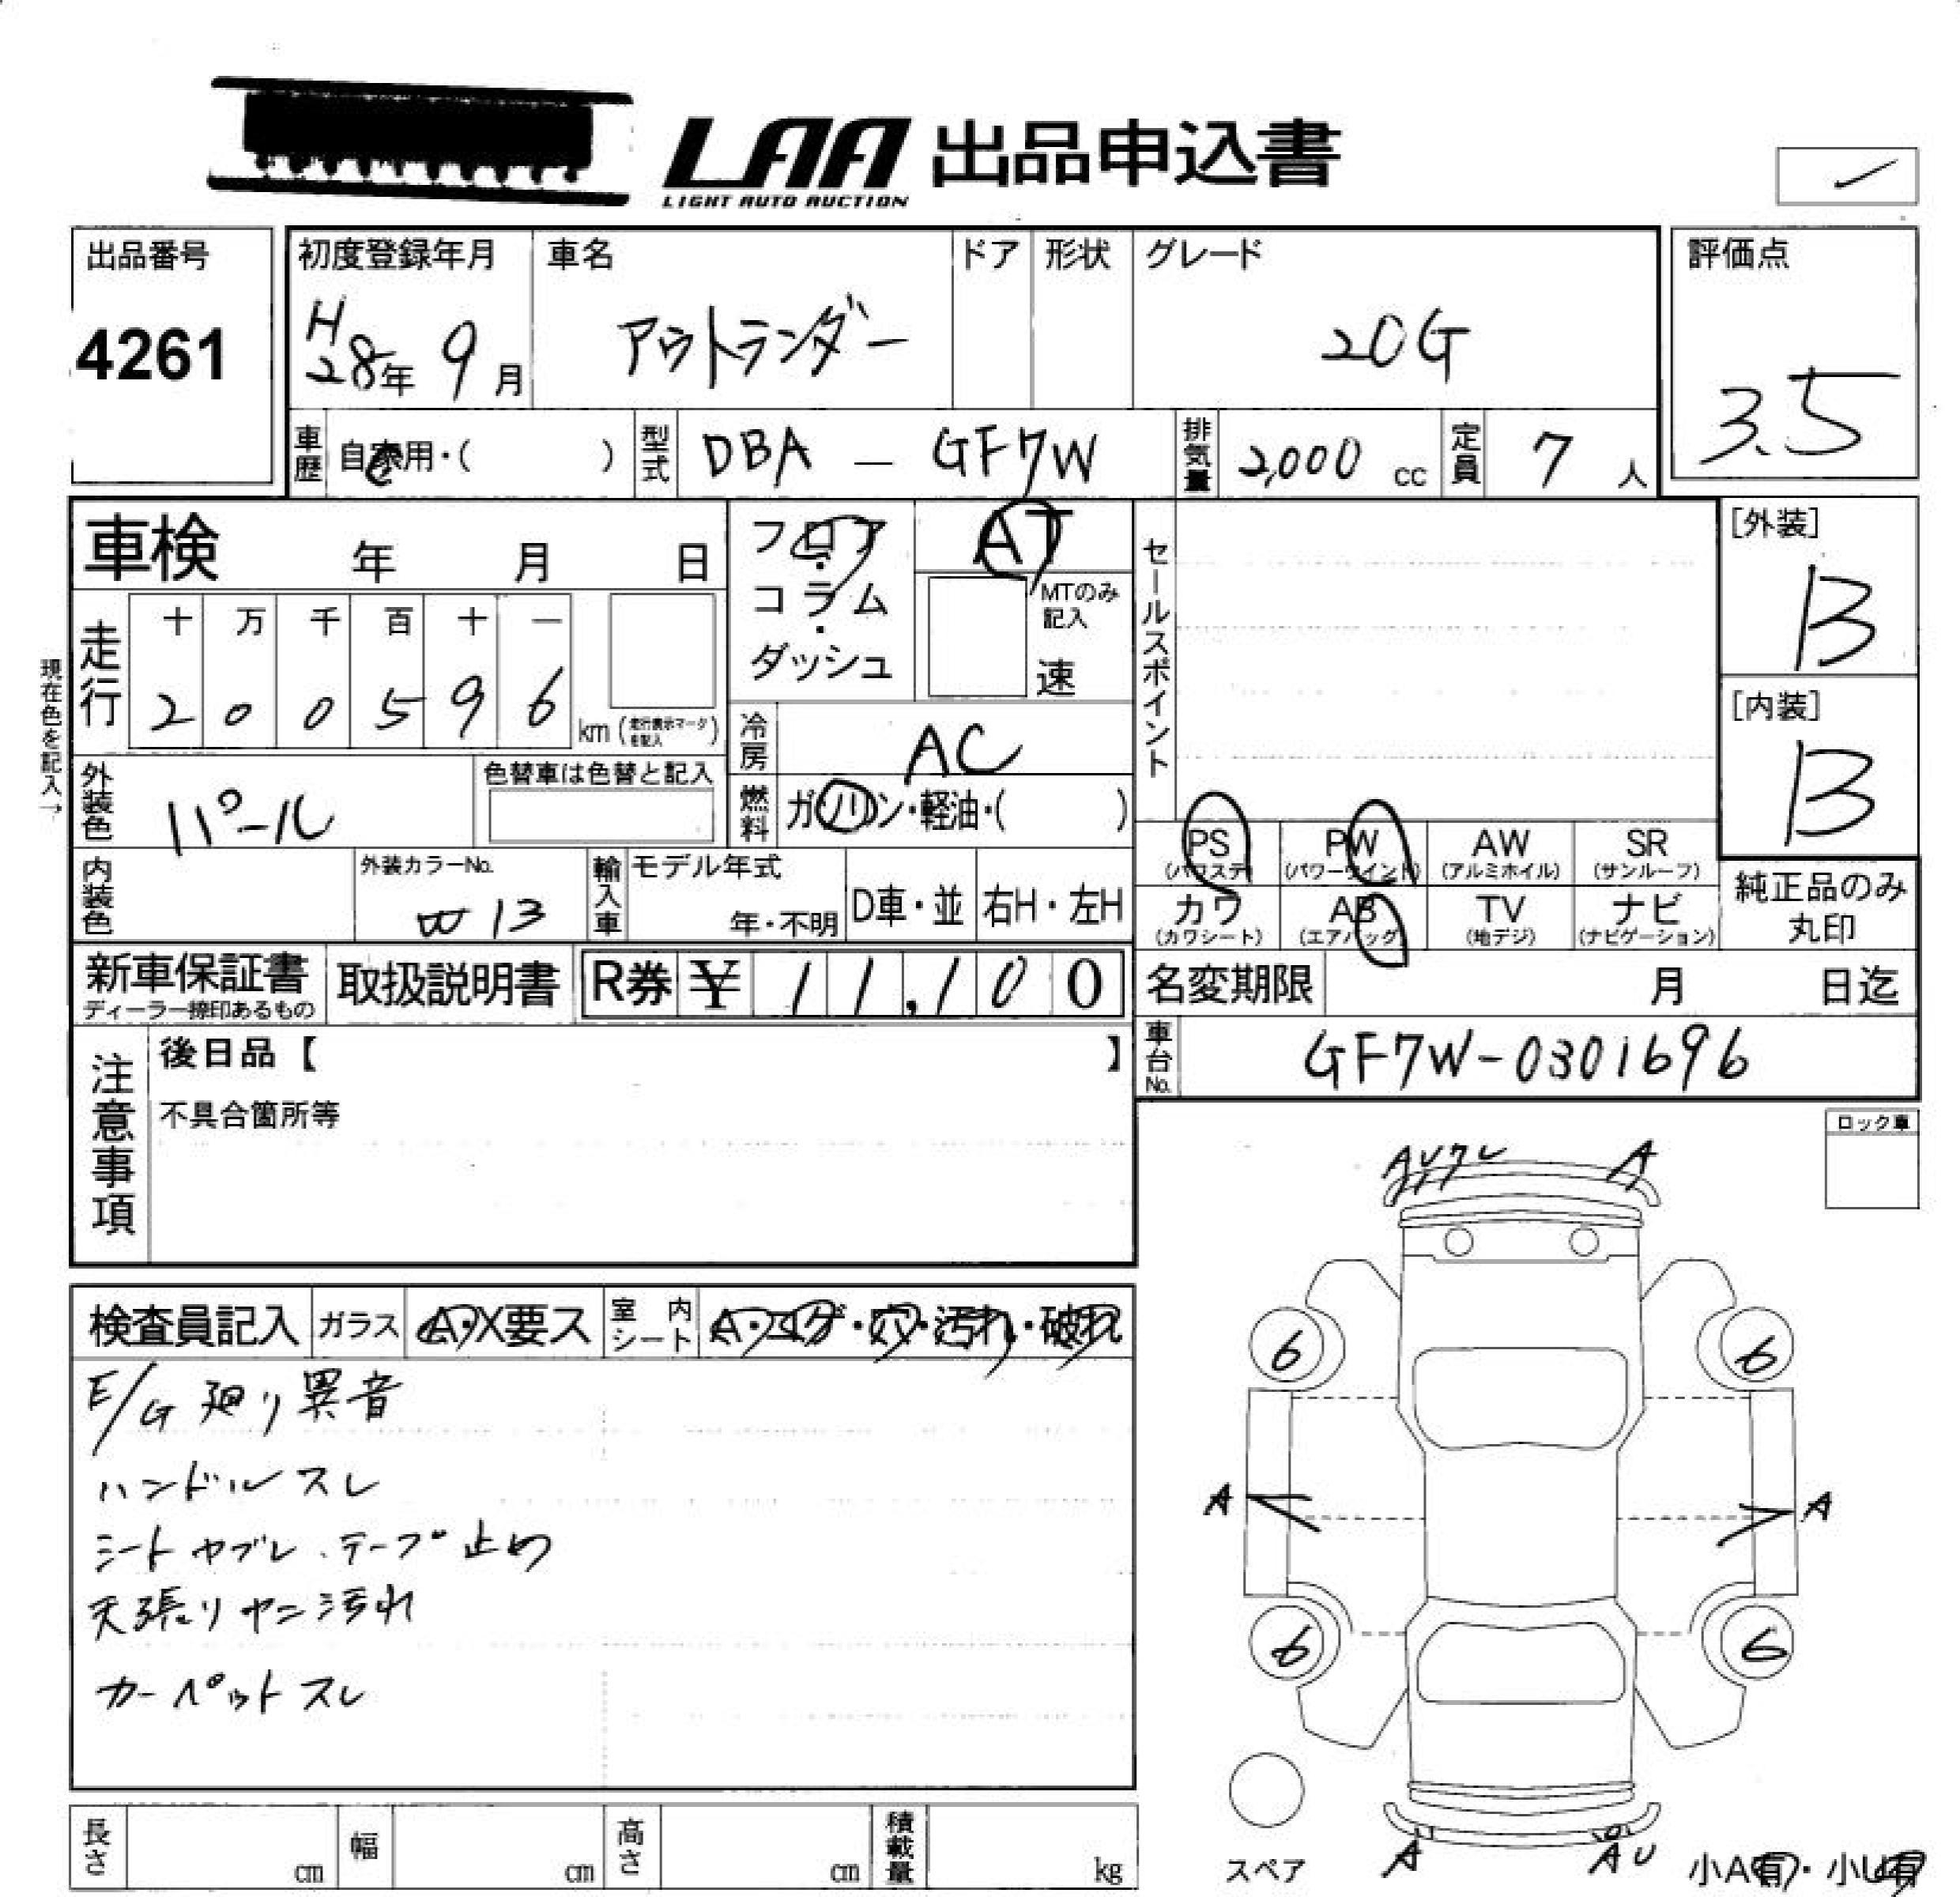 LAA 出品申込書
LIGHT AUTO AUCTION
出品番号
4261
初度登録年月
H
28年 9月
車名
アウトランダー
ドア
形状
グレード
20G
評価点
3.5
車歴
自家用・( )
型式
DBA - GF7W
排気量
2,000 cc
定員
7 人
車検 年 月 日
フロア・コラム・ダッシュ
AT
MTのみ記入
速
セールスポイント
[外装]
B
[内装]
B
現在色を記入→
走行
十 万 千 百 十 一
2 0 0 5 9 6 km (走行表示マークを記入)
冷房
AC
外装色
パール
色替車は色替と記入
燃料
ガソリン・軽油・( )
PS (パワステ)
PW (パワーウインド)
AW (アルミホイル)
SR (サンルーフ)
カワ (カワシート)
AB (エアバッグ)
TV (地デジ)
ナビ (ナビゲーション)
純正品のみ
丸印
内装色
外装カラーNo.
W13
輸入車
モデル年式
年・不明
D車・並
右H・左H
新車保証書
ディーラー捺印あるもの
取扱説明書
R券 ¥ 11,100
名変期限 月 日迄
車台No.
GF7W-0301696
注意事項
後日品【 】
不具合箇所等
ロック車
AUワレ A
検査員記入
ガラス
A・X要ス
室内シート
A・コゲ・穴・汚れ・破れ
E/G 廻り異音
ハンドルスレ
シートヤブレ、テープ止め
天張りヤニ汚れ
カーペットスレ
6 6
A A
6 6
A AU
スペア
小A有・小U有
長さ cm
幅 cm
高さ cm
積載量 kg